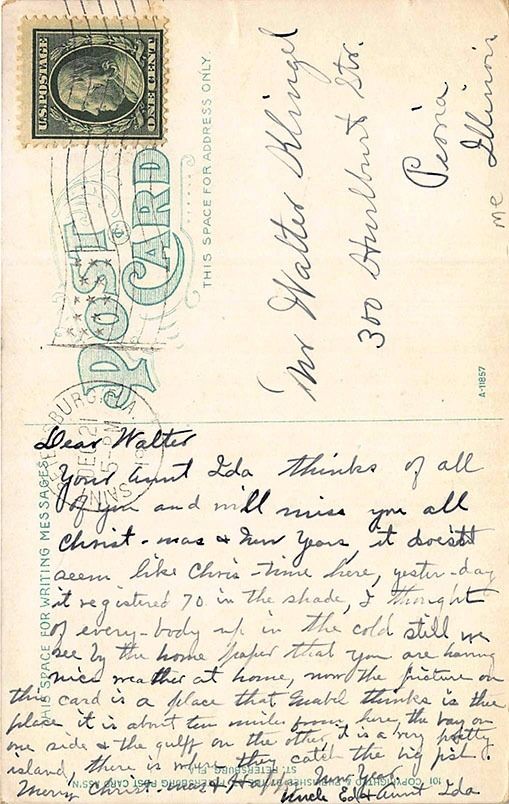 U.S. POSTAGE
ONE CENT
POST CARD
THIS SPACE FOR ADDRESS ONLY.
Mr Walter Klingel
300 Hurlburt Str.
Peoria
Illinois
me
A-11857
SAINT PETERSBURG, FLA
DEC 21
5-PM
THIS SPACE FOR WRITING MESSAGES
Dear Walter
Your Aunt Ida thinks of all
of you and will miss you all
Christ-mas & New Years, it doesn't
seem like Chris-time here, yester-day
it registered 70 in the shade, I thought
of every-body up in the cold still we
see by the home paper that you are having
nice weather at home, now the picture on
this card is a place that thinks is the
place it is about ten miles from here, the bay on
one side & the gulf on the other, it is a very pretty
island, there is where they catch the big fish.
Merry Christ-mas & Happy New Year
Uncle Ed & Aunt Ida
101 COPYRIGHTED & PUBLISHED BY ST. PETERSBURG POST CARD ASS'N
ST. PETERSBURG, FLA.